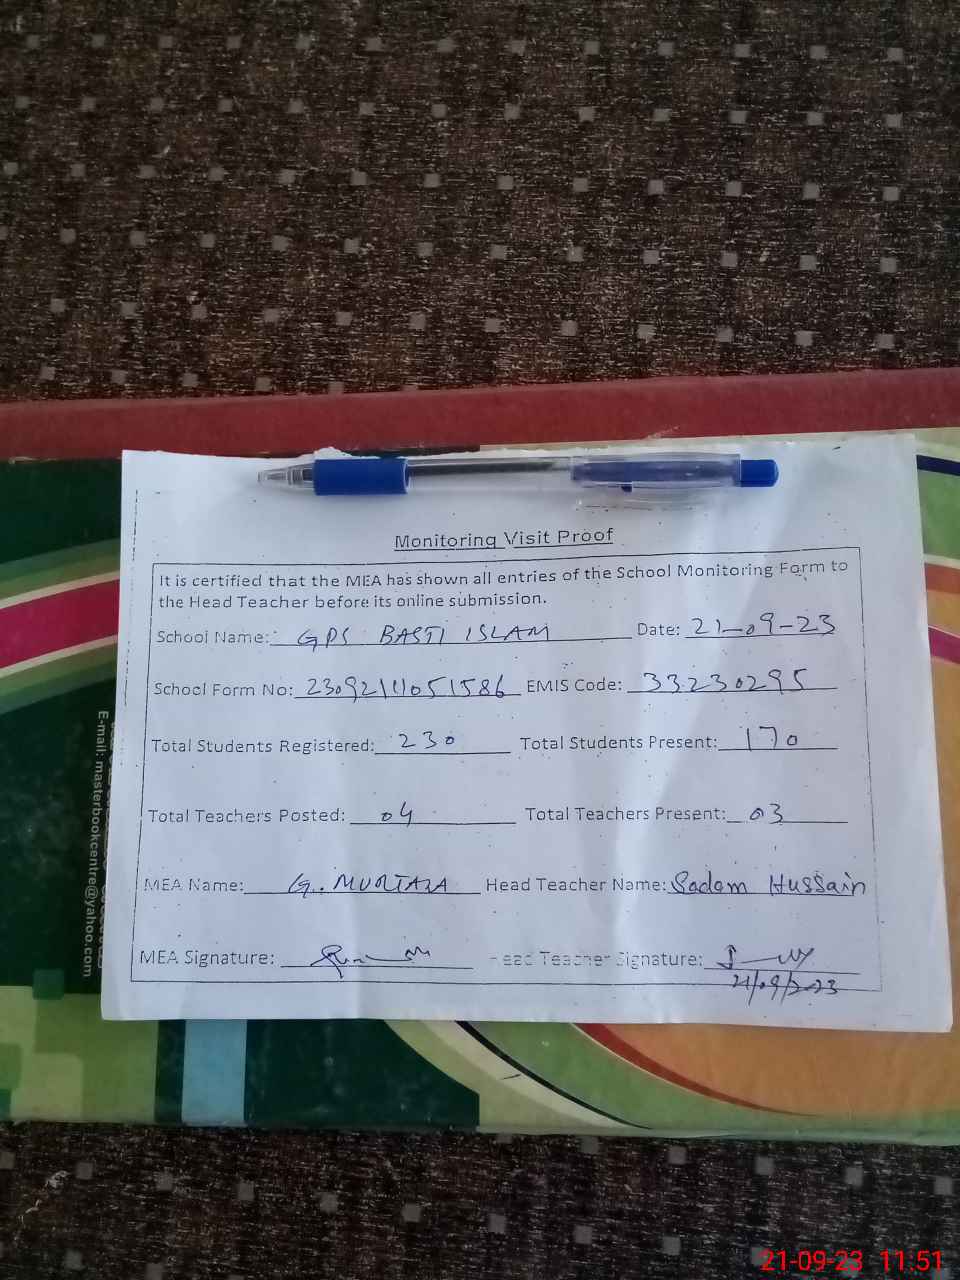 Monitoring Visit Proof
It is certified that the MEA has shown all entries of the School Monitoring Form to
the Head Teacher before its online submission.
School Name: GPS BASTI ISLAM Date: 21-09-23
School Form No: 2309211051586 EMIS Code: 33230295
Total Students Registered: 230 Total Students Present: 170
Total Teachers Posted: 04 Total Teachers Present: 03
MEA Name: G. MURTAZA Head Teacher Name: Sadam Hussain
MEA Signature: Head Teacher Signature:
21/09/2023
E-mail: masterbookcentre@yahoo.com
21-09-23 11.51